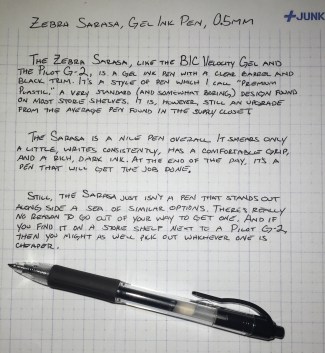 ZEBRA SARASA, GEL INK PEN, 0.5MM
JUNK
THE ZEBRA SARASA, LIKE THE BIC VELOCITY GEL AND
THE PILOT G-2, IS A GEL INK PEN WITH A CLEAR BARREL AND
BLACK TRIM. IT'S A STYLE OF PEN WHICH I CALL "PREMIUM
PLASTIC," A VERY STANDARD (AND SOMEWHAT BORING) DESIGN FOUND
ON MOST STORE SHELVES. IT IS, HOWEVER, STILL AN UPGRADE
FROM THE AVERAGE PEN FOUND IN THE SUPPLY CLOSET
THE SARASA IS A NICE PEN OVERALL. IT SMEARS ONLY
A LITTLE, WRITES CONSISTENTLY, HAS A COMFORTABLE GRIP,
AND A RICH, DARK INK. AT THE END OF THE DAY, IT'S A
PEN THAT WILL GET THE JOB DONE.
STILL, THE SARASA JUST ISN'T A PEN THAT STANDS OUT
ALONG SIDE A SEA OF SIMILAR OPTIONS. THERE'S REALLY
NO REASON TO GO OUT OF YOUR WAY TO GET ONE. AND IF
YOU FIND IT ON A STORE SHELF NEXT TO A PILOT G-2,
THEN YOU MIGHT AS WELL PICK OUT WHICHEVER ONE IS
CHEAPER.